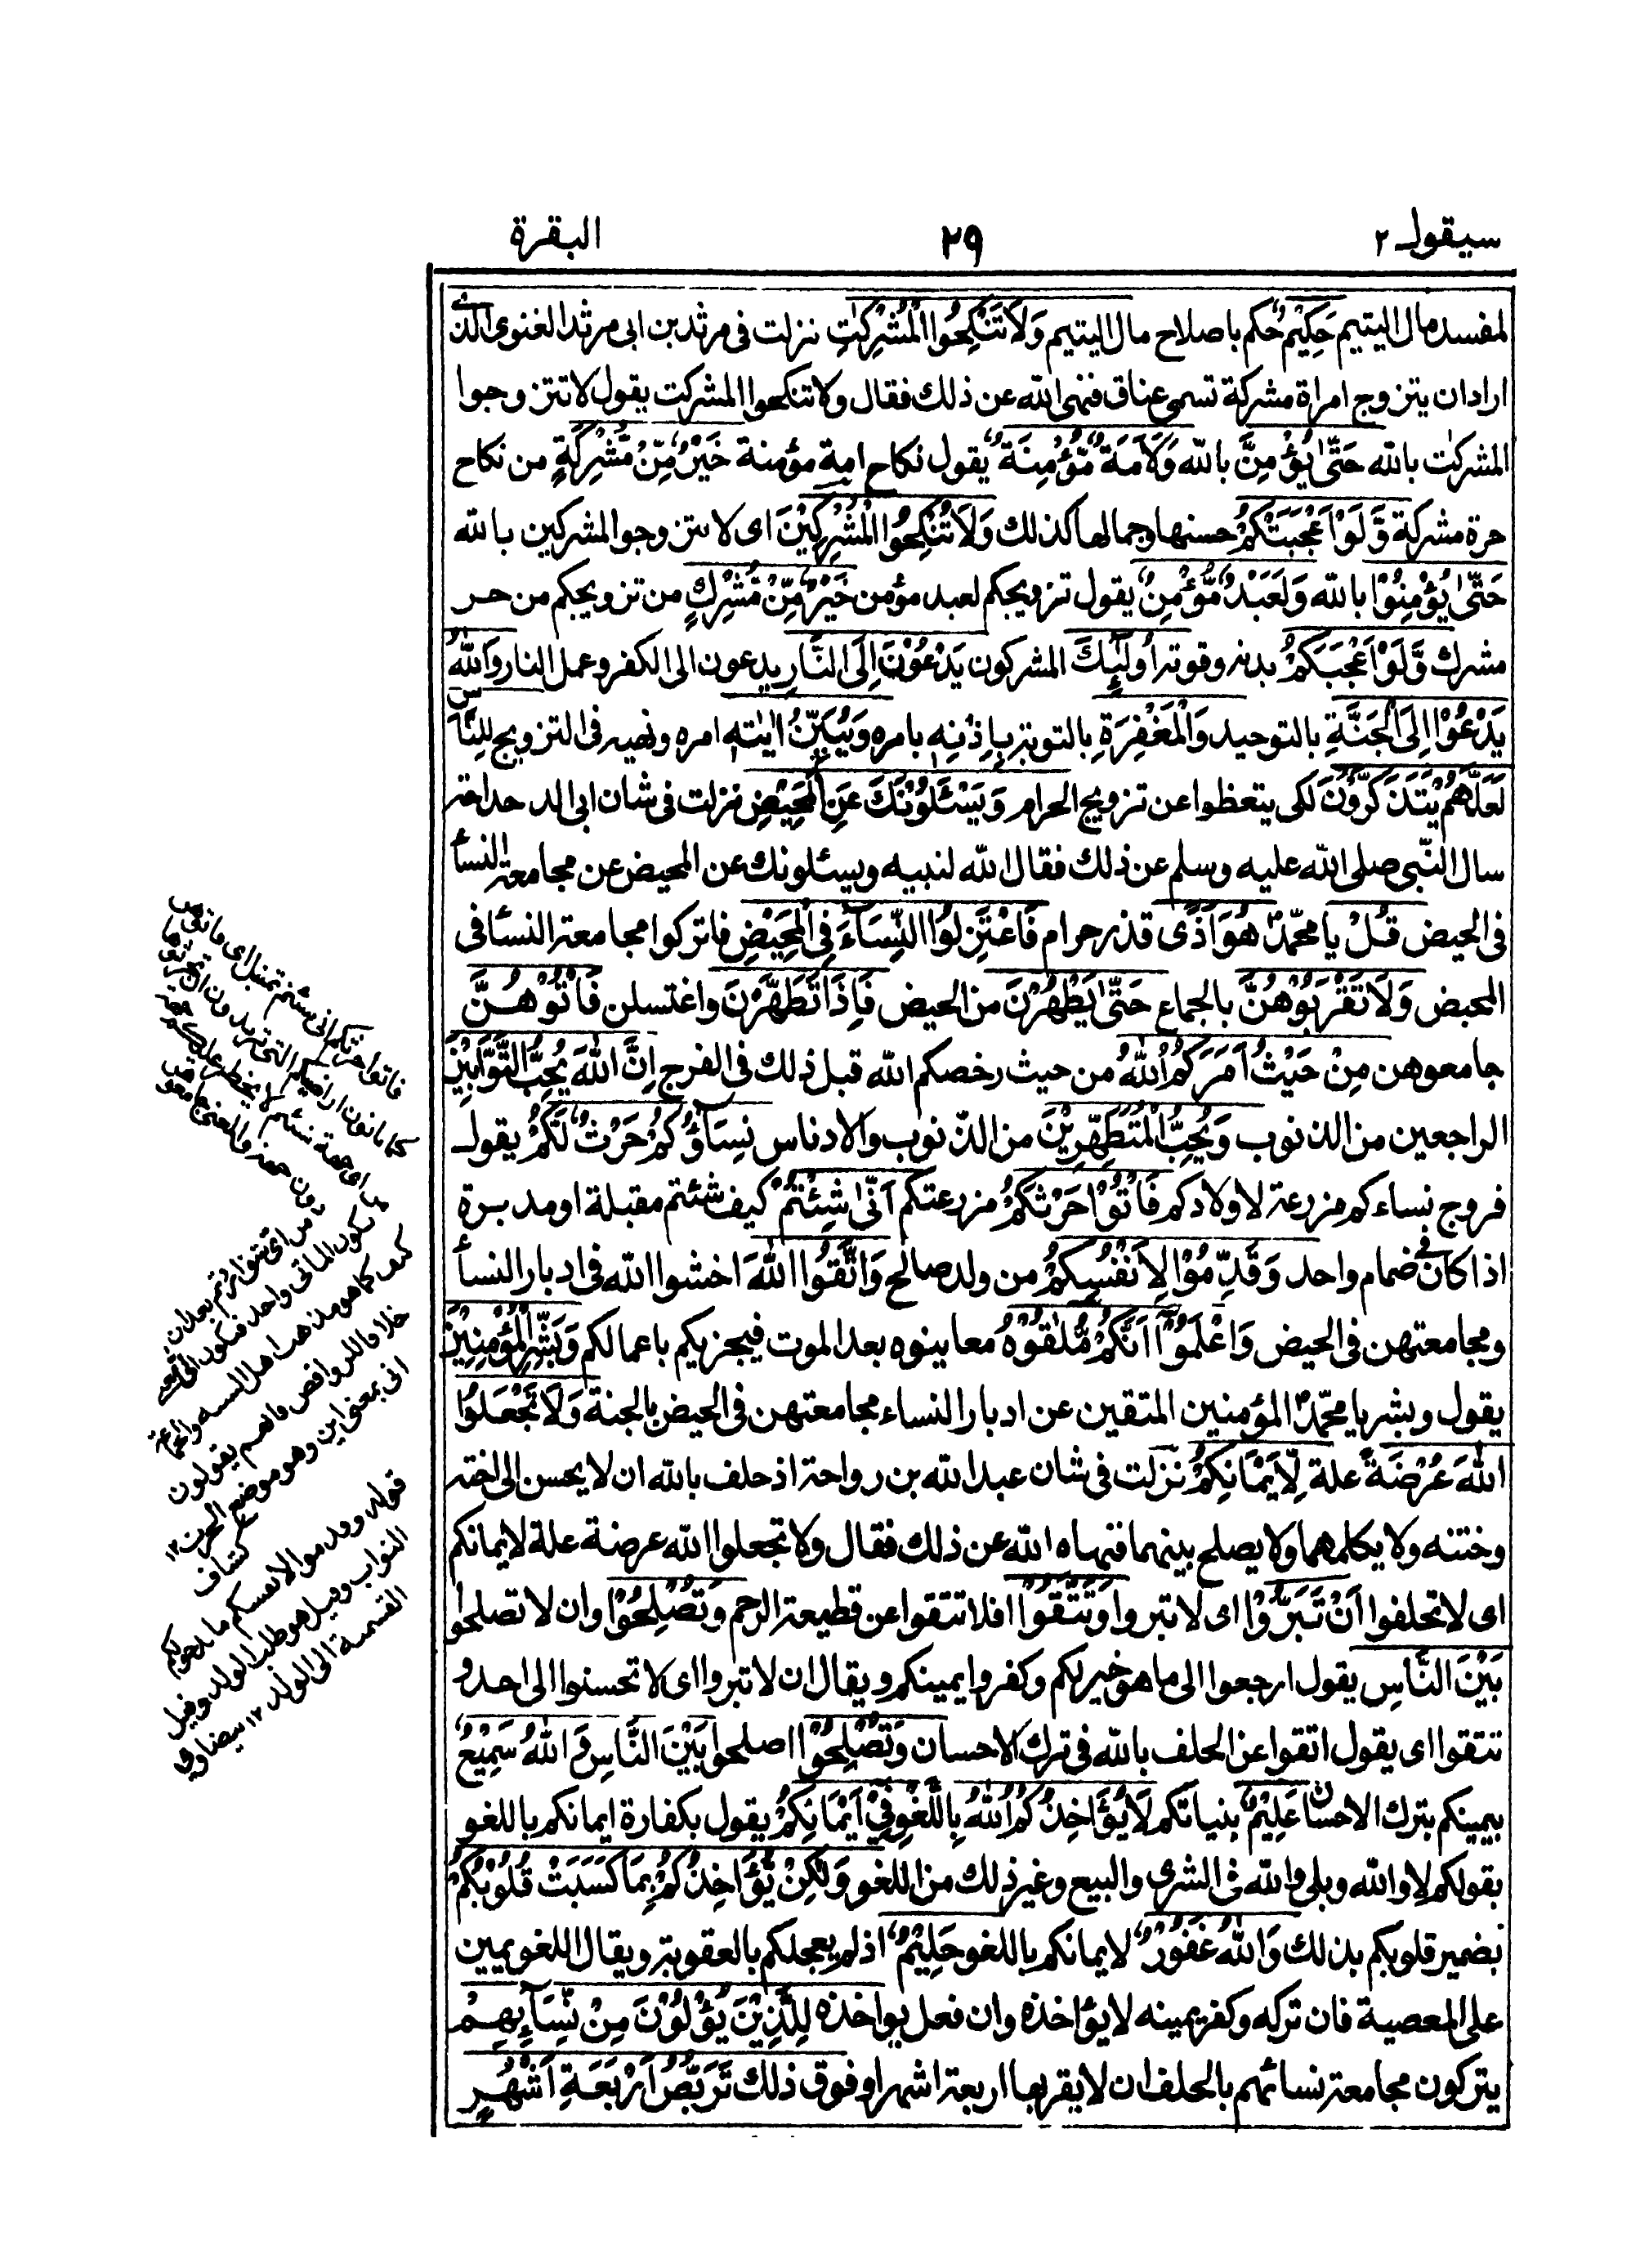 سيقول ٢
٢٩
البقرة
لمفسد مال اليتيم حَكِيْمٌ حكم باصلاح مال اليتيم وَلَا تَنْكِحُوا الْمُشْرِكٰتِ نزلت فى مرثد بن ابى مرثد الغنوى الذى
اراد ان يتزوج امراة مشركة تسمى عناق فنهى الله عن ذلك فقال ولا تنكحوا المشركت يقول لا تتزوجوا
المشركٰت بالله حَتّٰى يُؤْمِنَّ بالله وَلَاَمَةٌ مُّؤْمِنَةٌ يقول نكاح امة مؤمنة خَيْرٌ مِّنْ مُّشْرِكَةٍ من نكاح
حرة مشركة وَّلَوْ اَعْجَبَتْكُمْ حسنها وجمالها كذلك وَلَا تُنْكِحُوا الْمُشْرِكِيْنَ اى لا تتزوجوا المشركين بالله
حَتّٰى يُؤْمِنُوْا بالله وَلَعَبْدٌ مُّؤْمِنٌ يقول تزويجكم لعبد مؤمن خَيْرٌ مِّنْ مُّشْرِكٍ من تزويجكم من حر
مشرك وَّلَوْ اَعْجَبَكُمْ بدنه وقوته اُولٰٓئِكَ المشركون يَدْعُوْنَ اِلَى النَّارِ يدعون الى الكفر وعمل النار وَاللّٰهُ
يَدْعُوْا اِلَى الْجَنَّةِ بالتوحيد وَالْمَغْفِرَةِ بالتوبة بِاِذْنِهٖ بامره وَيُبَيِّنُ اٰيٰتِهٖ امره ونهيه فى التزويج لِلنَّاسِ
لَعَلَّهُمْ يَتَذَكَّرُوْنَ لكى يتعظوا عن تزويج الحرام وَيَسْئَلُوْنَكَ عَنِ الْمَحِيْضِ نزلت فى شان ابى الدحداحة
سال النّبى صلى الله عليه وسلم عن ذلك فقال الله لنبيه ويسئلونك عن المحيض عن مجامعة النسأ
فى الحيض قُلْ يا محمّد هُوَ اَذًى قذر حرام فَاعْتَزِلُوا النِّسَآءَ فِى الْمَحِيْضِ فاتركوا مجامعة النسأ فى
المحيض وَلَا تَقْرَبُوْهُنَّ بالجماع حَتّٰى يَطْهُرْنَ من الحيض فَاِذَا تَطَهَّرْنَ واغتسلن فَاْتُوْهُنَّ
جامعوهن مِنْ حَيْثُ اَمَرَكُمُ اللّٰهُ من حيث رخصكم الله قبل ذلك فى الفرج اِنَّ اللّٰهَ يُحِبُّ التَّوَّابِيْنَ
الراجعين من الذنوب وَيُحِبُّ الْمُتَطَهِّرِيْنَ من الذّنوب والادناس نِسَآؤُكُمْ حَرْثٌ لَّكُمْ يقول
فروج نساءكم مزرعة لاولادكم فَاْتُوْا حَرْثَكُمْ مزرعتكم اَنّٰى شِئْتُمْ كيف شئتم مقبلة او مدبرة
اذا كان فى ضمام واحد وَقَدِّمُوْا لِاَنْفُسِكُمْ من ولد صالح وَاتَّقُوا اللّٰهَ اخشوا الله فى ادبار النسأ
ومجامعتهن فى الحيض وَاعْلَمُوْٓا اَنَّكُمْ مُّلٰقُوْهُ معاينوه بعد الموت فيجزيكم باعمالكم وَبَشِّرِ الْمُؤْمِنِيْنَ
يقول وبشر يا محمّد المؤمنين المتقين عن ادبار النساء مجامعتهن فى الحيض بالجنة وَلَا تَجْعَلُوا
اللّٰهَ عُرْضَةً علة لِّاَيْمَانِكُمْ نزلت فى شان عبد الله بن رواحة اذ حلف بالله ان لا يحسن الى اخته
وختنه ولا يكلمهما ولا يصلح بينهما فنهاه الله عن ذلك فقال ولا تجعلوا الله عرضة علة لايمانكم
اى لا تحلفوا اَنْ تَبَرُّوْا اى لا تبروا وَتَتَّقُوْا افلا تتقوا عن قطيعة الرحم وَتُصْلِحُوْا وان لا تصلحوا
بَيْنَ النَّاسِ يقول ارجعوا الى ما هو خير لكم وكفروا يمينكم ويقال ان لا تبروا اى لا تحسنوا الى احد و
تتقوا اى يقول اتقوا عن الحلف بالله فى ترك الاحسان وَتُصْلِحُوْا اصلحوا بَيْنَ النَّاسِ وَاللّٰهُ سَمِيْعٌ
بيمينكم بترك الاحسان عَلِيْمٌ بنياتكم لَا يُؤَاخِذُكُمُ اللّٰهُ بِاللَّغْوِ فِىْٓ اَيْمَانِكُمْ يقول بكفارة ايمانكم باللغو
بقولكم لا والله وبلى والله فى الشرى والبيع وغير ذلك من اللغو وَلٰكِنْ يُّؤَاخِذُكُمْ بِمَا كَسَبَتْ قُلُوْبُكُمْ
بضمير قلوبكم بذلك وَاللّٰهُ غَفُوْرٌ لايمانكم باللغو حَلِيْمٌ اذ لم يعجلكم بالعقوبة ويقال اللغو يمين
على المعصية فان تركه وكفر يمينه لا يؤاخذه وان فعل يواخذه لِلَّذِيْنَ يُؤْلُوْنَ مِنْ نِّسَآئِهِمْ
يتركون مجامعة نسائهم بالحلف ان لا يقربها اربعة اشهر او فوق ذلك تَرَبُّصُ اَرْبَعَةِ اَشْهُرٍ
فاتوا حرثكم انى شئتم تمثيل اى فاتوهن
كما تاتون اراضيكم التى تريدون ان تحرثوها
اى جهة شئتم لا يخطر عليكم جهة
دون جهة والمعنى جامعوهن
من اى شق اردتم بعد ان
يكون الماتى واحد
خلافا للروافض فانهم يقولون
انى بمعنى اين وهو موضع الحرث ١٢
كشاف
قوله وقدموا لانفسكم ما يدخر لكم
الثواب وقيل هو طلب الولد وقيل
التسمية الى الولد ١٢ بيضاوى